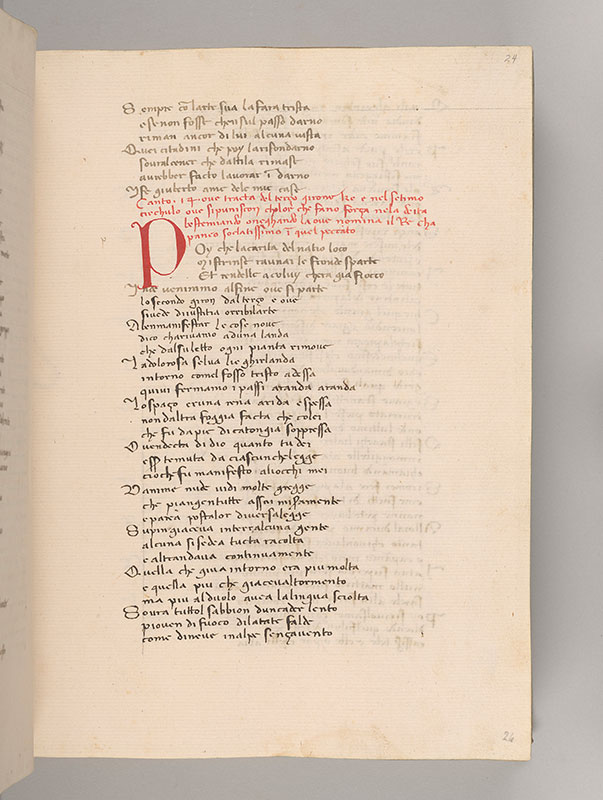 24
Sempre cō larte sua la fara trista
e se non fosse chen sul passo darno
riman ancor di lui alcuna vista
Quei citadini che poy la rifondarno
sovralcener che dattila rimase
avrebber facto lavorar ī darno
case
Canto. 14 ove tracta del terço girone
e nel septimo
ove si puniscon choloro che fano força nela
P
bestemiando la ove nomina il Re
ī quel peccato
oy che la carita del natio loco
mi strinse raunai le fronde sparte
Et rendelle a colui chera gia fioco
Inde venimmo alfine ove si parte
lo secondo giron dal terço e ove
si vede di iustitia orribilarte
A ben manifestar le cose nove
dico charivamo aduna landa
che dal suo letto ogni pianta rimove
La dolorosa selva lie ghirlanda
intorno comel fosso tristo adessa
quivi fermamo i passi aranda aranda
Lo spaço eruna rena arida e spessa
non daltra foggia facta che colei
che fu da pie di caton gia soppressa
O vendecta di dio quanto tu dei
esser temuta da ciascun che legge
cio che fu manifesto aliocchi mei
Danime nude vidi molte gregge
che piangen tutte assai miseramente
e parea posta lor diversa legge
Supin giaceva in terra alcuna gente
alcuna si sedea tucta racolta
e altrandava continuamente
Quella che giva intorno era piu molta
e quella piu che giaceva al tormento
ma piu al duolo avea la lingua sciolta
Sovra tuttol sabbion dun cader lento
pioven di fuoco dilatate falde
come di neve in alpe sença vento
26